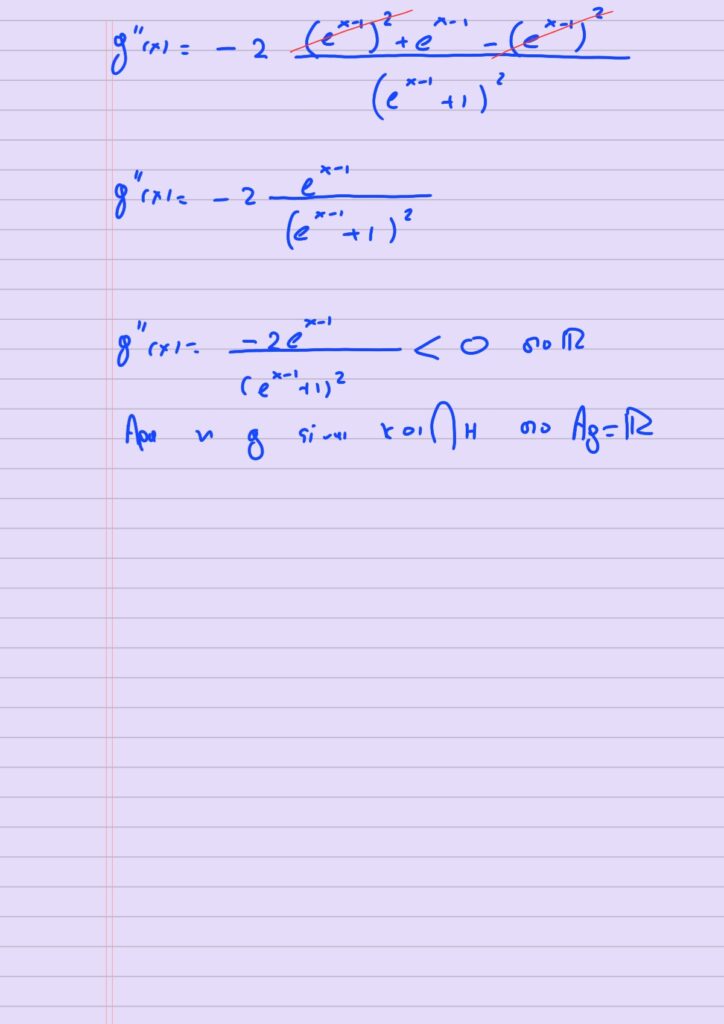 g''(x) = - 2 ((e^{x-1})^2 + e^{x-1} - (e^{x-1})^2) / (e^{x-1} + 1)^2
g''(x) = - 2 e^{x-1} / (e^{x-1} + 1)^2
g''(x) = -2e^{x-1} / (e^{x-1} + 1)^2 < 0 στο ℝ
Άρα η g είναι κοίλη στο Ag = ℝ